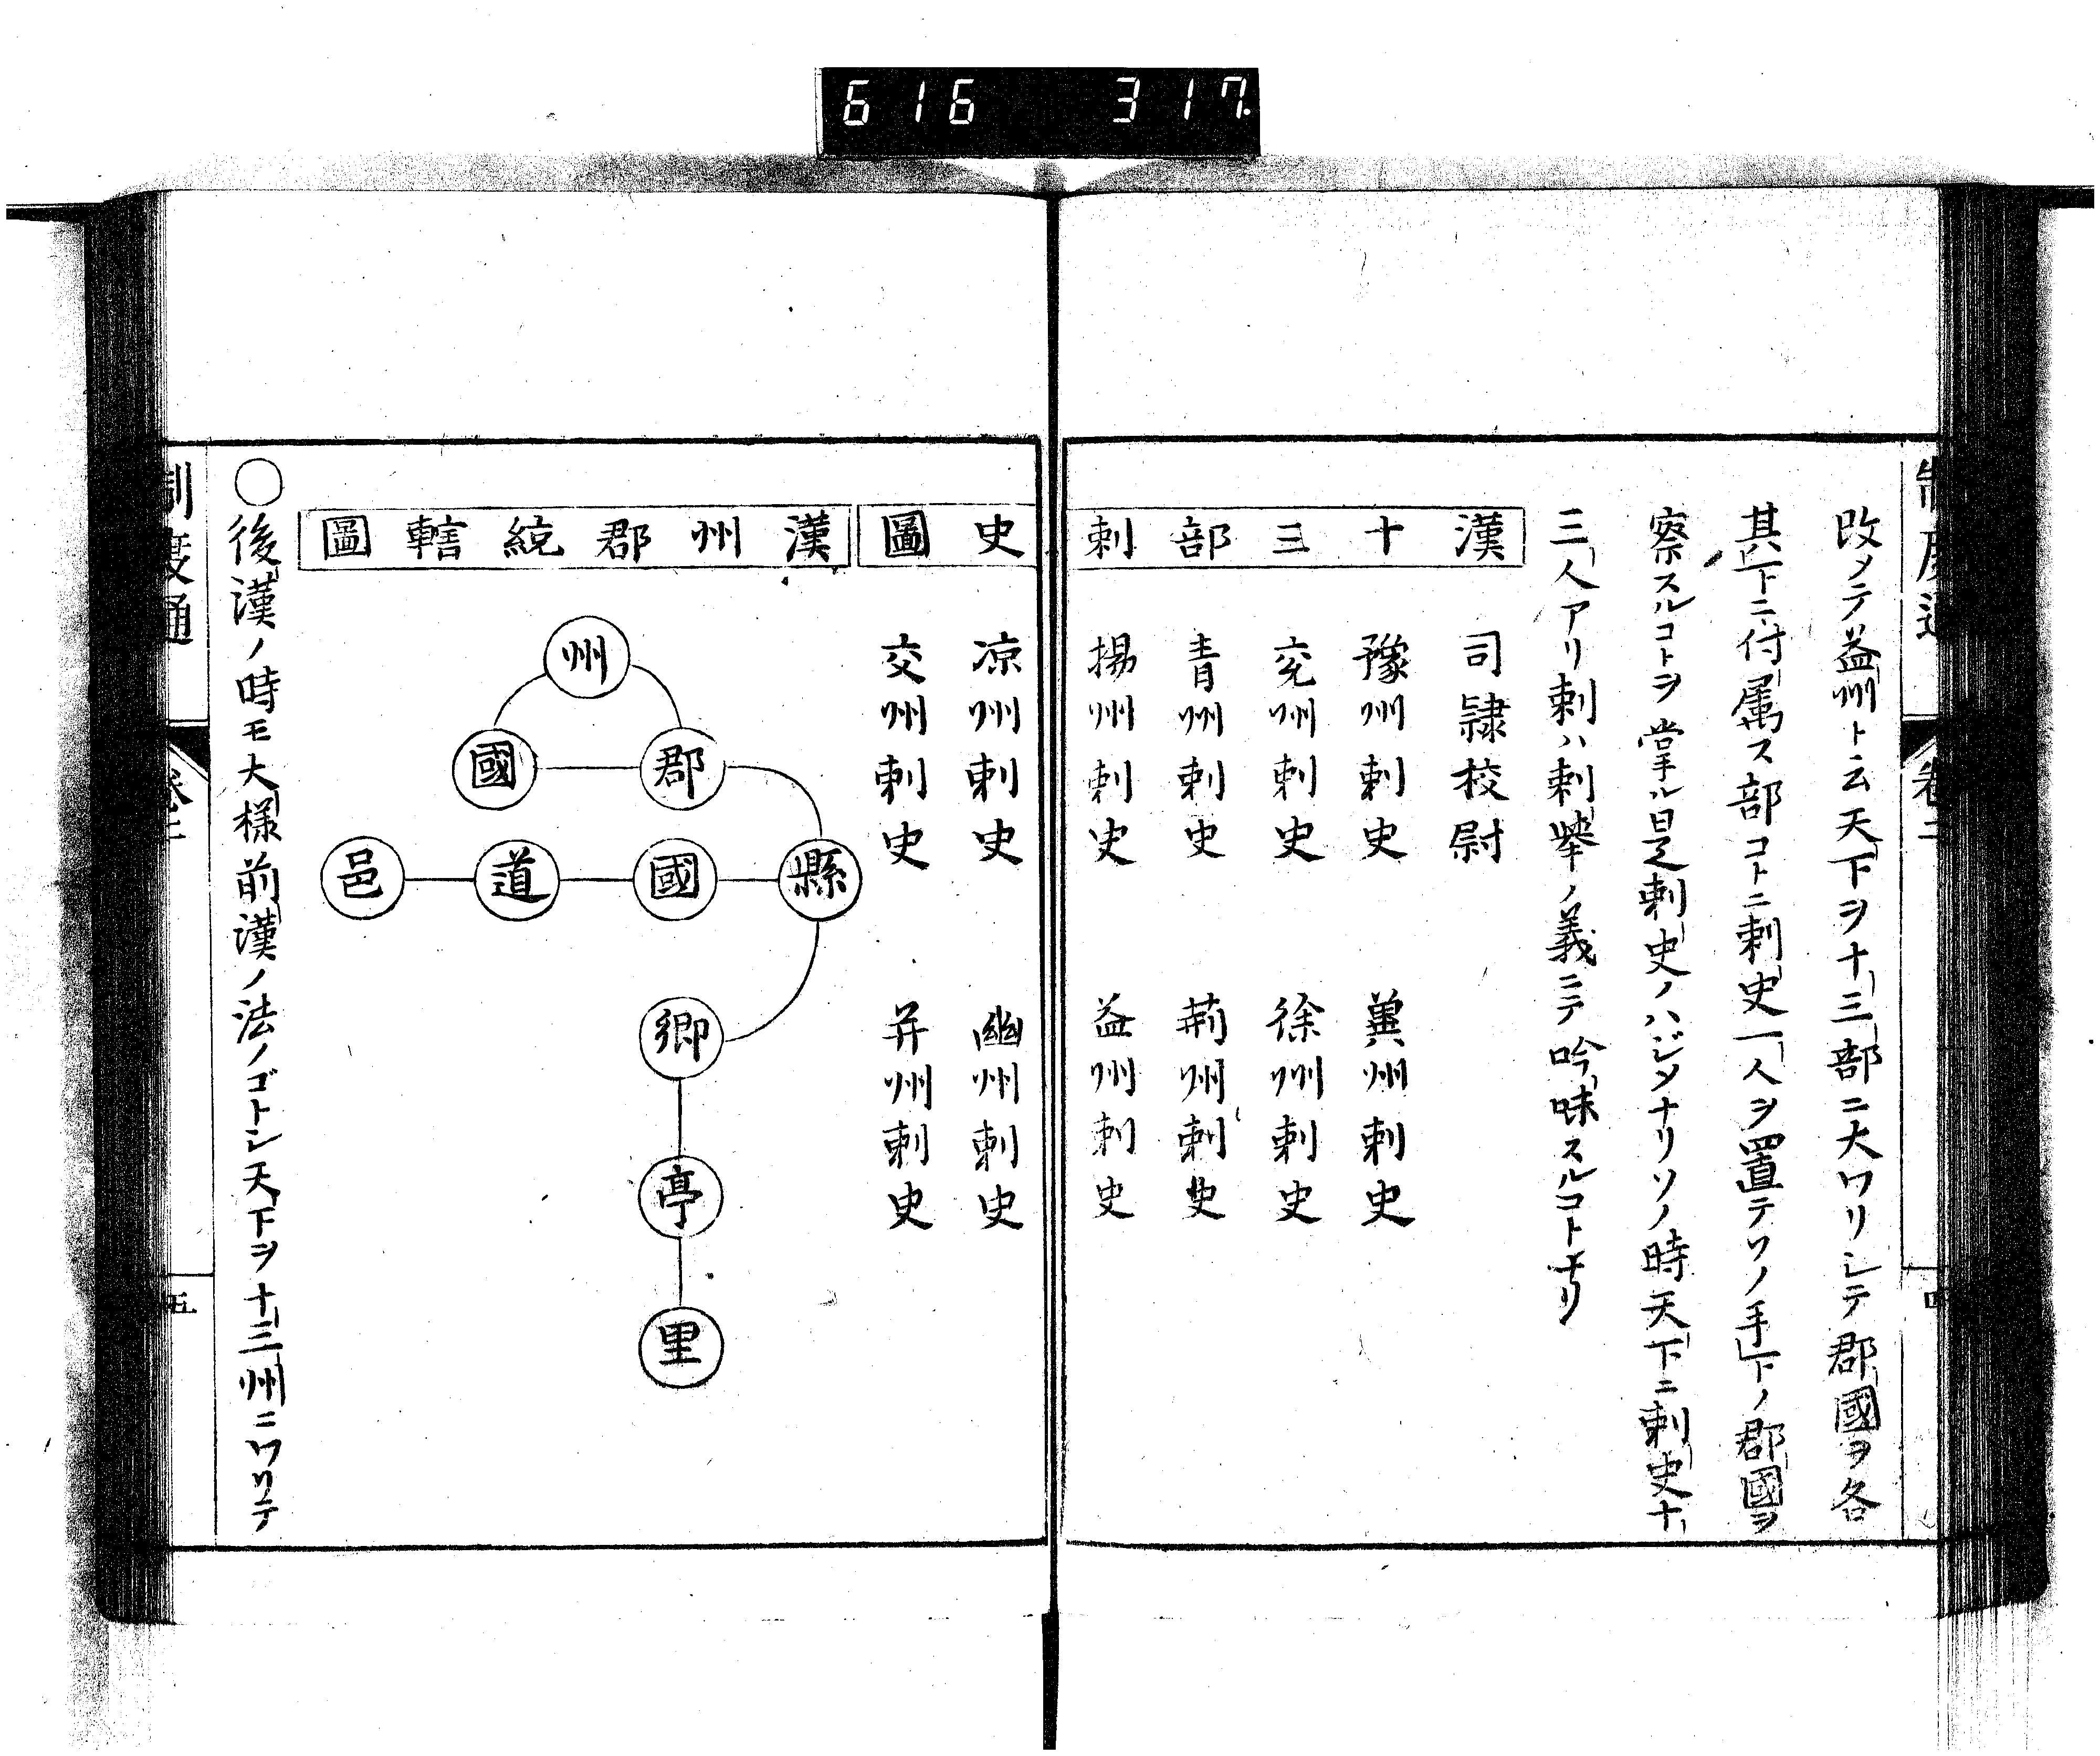 616 317
制度通 卷二 四
改メテ益州ト云天下ヲ十三部ニ大ワリシテ郡國ヲ各
其下ニ付属ス部コトニ刺史一人ヲ置テソノ手下ノ郡國ヲ
察スルコトヲ掌ル是刺史ノハジメナリソノ時天下ニ刺史十
三人アリ刺ハ刺挙ノ義ニテ吟味スルコトナリ
漢十三部刺史圖
司隷校尉
豫州刺史 冀州刺史
兗州刺史 徐州刺史
青州刺史 荊州刺史
揚州刺史 益州刺史
凉州刺史 幽州刺史
交州刺史 并州刺史
漢州郡統轄圖
州
郡 國
縣 國 道 邑
鄉
亭
里
○後漢ノ時モ大様前漢ノ法ノゴトシ天下ヲ十三州ニワリテ
制度通 卷二 五